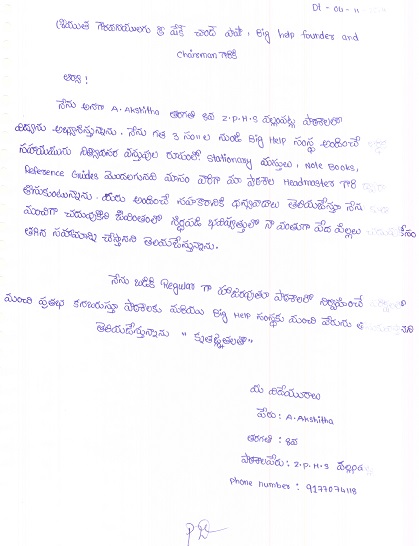 Dt - 06 - 11
శ్రీయుత గౌరవనీయులగు శ్రీ షేక్ చాంద్ పాషా, Big help founder and
Chairman గారికి
ఆర్యా!
నేను అనగా A. Akshitha తరగతి 8వ Z.P.H.S పాఠశాలలో
విద్యను అభ్యసిస్తున్నాను. నేను గత 3 సం||ల నుండి Big Help సంస్థ అందించే
సహాయమును నిత్యావసర వస్తువుల రూపంలో stationary వస్తువులు, Note Books,
Reference Guides మొదలగునవి మాసం వారిగా మా పాఠశాల Headmaster గారి
తీసుకుంటున్నాను. మీరు అందించే సహకారానికి ధన్యవాదాలు తెలియజేస్తూ నేను
మంచిగా చదువుకొని జీవితంలో స్థిరపడి భవిష్యత్తులో నా వంతుగా పేద పిల్లలు
తగిన సహాయాన్ని చేస్తానని తెలియజేస్తున్నాను.
నేను బడికి Regular గా హాజరవుతూ పాఠశాలలో నిర్వహించే
మంచి ప్రతిభ కనబరుస్తూ పాఠశాలకు మరియు Big Help సంస్థకు మంచి పేరును
తెలియజేస్తున్నాను " కృతజ్ఞతలతో "
మీ విధేయురాలు
పేరు : A. Akshitha
తరగతి : 8వ
పాఠశాలపేరు : Z.P.H.S
Phone number : 9177074118